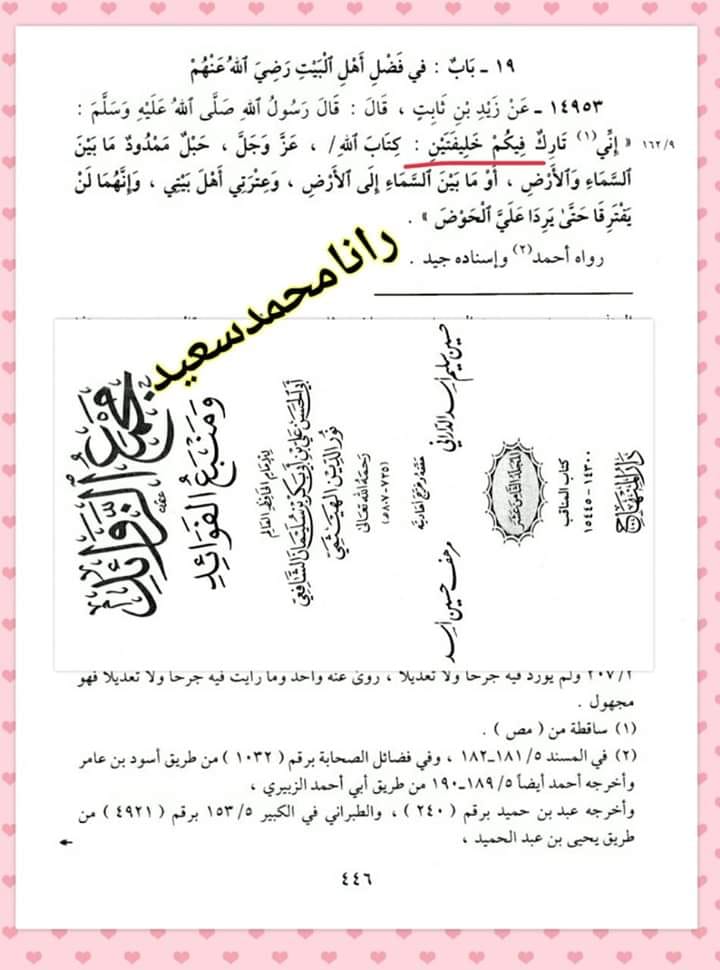 ١٩ - بَابٌ : في فَضْلِ أَهْلِ ٱلْبَيْتِ رَضِيَ ٱللهُ عَنْهُمْ
١٤٩٥٣ - عَنْ زَيْدِ بْنِ ثَابِتٍ ، قَالَ : قَالَ رَسُولُ ٱللهِ صَلَّى ٱللهُ عَلَيْهِ وَسَلَّمَ :
« إِنِّي(١) تَارِكٌ فِيكُمْ خَلِيفَتَيْنِ : كِتَابَ ٱللهِ/ ، عَزَّ وَجَلَّ ، حَبْلٌ مَمْدُودٌ مَا بَيْنَ
١٦٢/٩
ٱلسَّمَاءِ وَٱلأَرْضِ ، أَوْ مَا بَيْنَ ٱلسَّمَاءِ إِلَى ٱلأَرْضِ ، وَعِتْرَتِي أَهْلَ بَيْتِي ، وَإِنَّهُمَا لَنْ
يَفْتَرِقَا حَتَّىٰ يَرِدَا عَلَيَّ ٱلْحَوْضَ » .
رواه أحمد(٢) وإسناده جيد .
رانا محمد سعيد
مَجْمَعُ الزَّوَائِدِ
وَمَنْبَعُ الفَوَائِدِ
لِلإِمَامِ الحَافِظِ العَالِمِ
أَبِي الحَسَنِ عَلِيِّ بْنِ أَبِي بَكْرِ بْنِ سُلَيْمَانَ الشَّافِعِيِّ
نُورِ الدِّينِ الهَيْثَمِيِّ
رَحِمَهُ اللهُ تَعَالَى
(٧٣٥-٨٠٧هـ)
حققه وخرج أحاديثه
حسين سليم أسد الداراني
مرهف حسين أسد
المجلد الثامن عشر
كتاب المناقب
١٤٣٠٠ - ١٥٤٤٥
دار المنهاج
٢٠٧/٢ ولم يورد فيه جرحاً ولا تعديلاً ، روىٰ عنه واحد وما رأيت فيه جرحاً ولا تعديلاً فهو
مجهول .
(١) ساقطة من ( مص ) .
(٢) في المسند ١٨١/٥ـ١٨٢ ، وفي فضائل الصحابة برقم ( ١٠٣٢ ) من طريق أسود بن عامر
وأخرجه أحمد أيضاً ١٨٩/٥ـ١٩٠ من طريق أبي أحمد الزبيري ،
وأخرجه عبد بن حميد برقم ( ٢٤٠ ) ، والطبراني في الكبير ١٥٣/٥ برقم ( ٤٩٢١ ) من
طريق يحيى بن عبد الحميد ،
٤٤٦